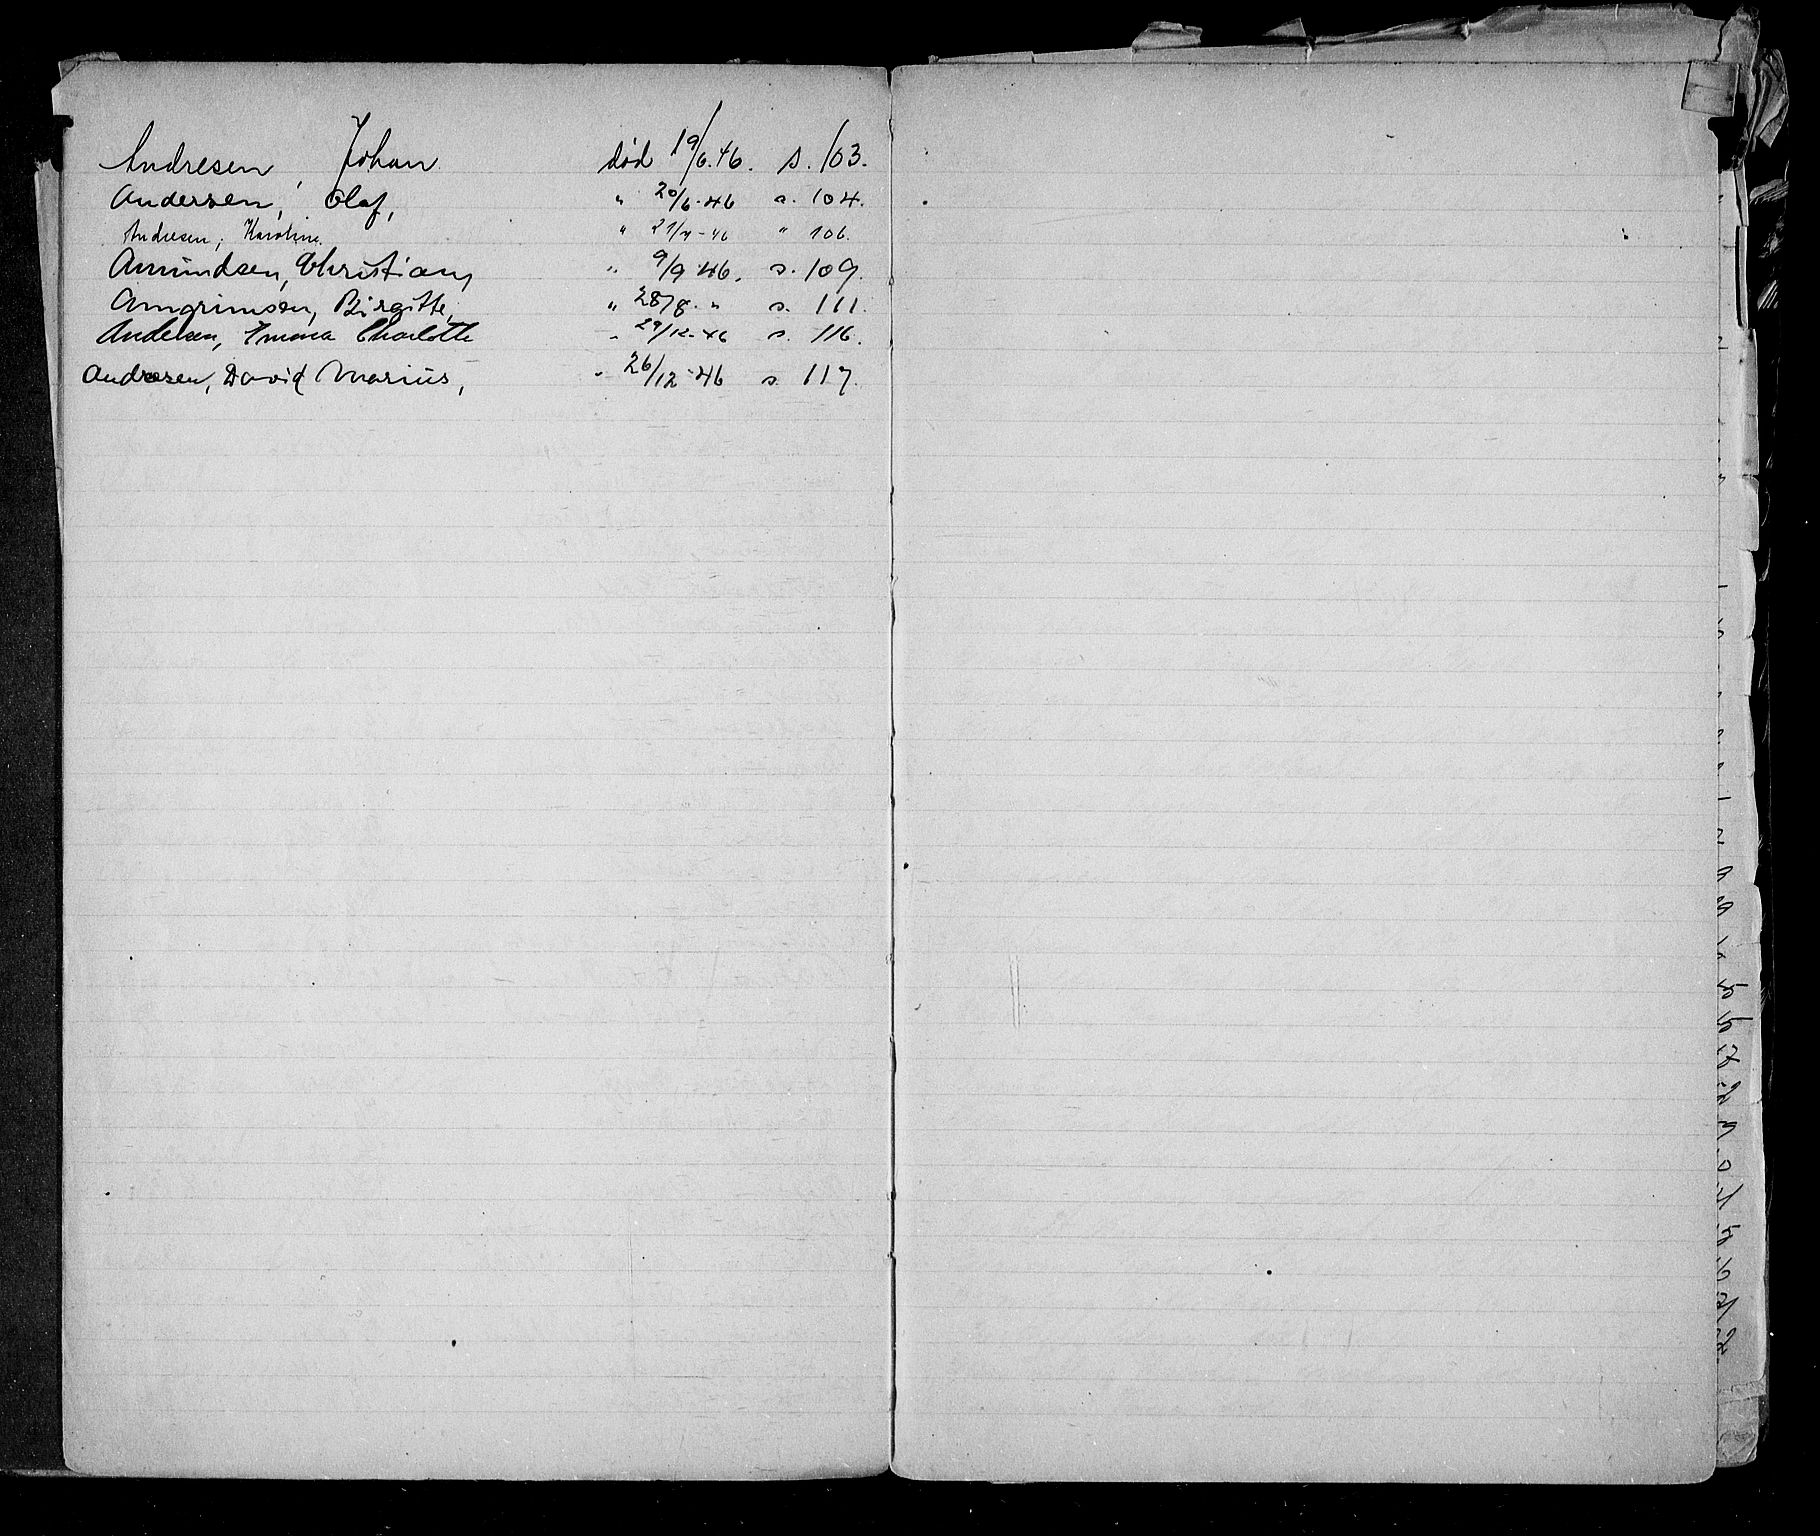 Andresen, Johan død 19/6.46. s. 103.
Andersen, Olaf, " 20/6-46 s. 104.
Andresen, Karoline " 21/7-46 " 106.
Amundsen, Christian, " 9/9-46. s. 109.
Arngrimsen, Birgitte, " 28/8. " s. 111.
Andersen, Emma Charlotte " 29/12-46 s. 116.
Andresen, David Marius, " 26/12-46 s. 117.